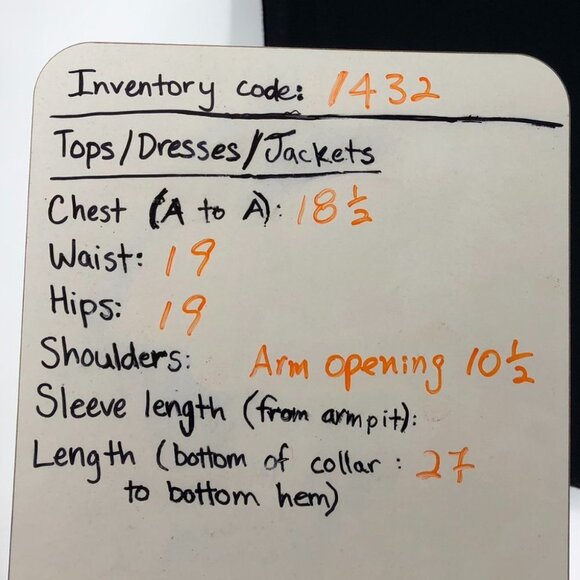 Inventory code: 1432
Tops/Dresses/Jackets
Chest (A to A): 18 1/2
Waist: 19
Hips: 19
Shoulders: Arm opening 10 1/2
Sleeve length (from armpit):
Length (bottom of collar : 27
to bottom hem)